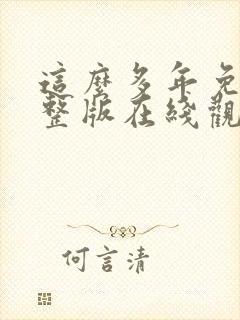 這麼多年免
整版在綫觀
何言清